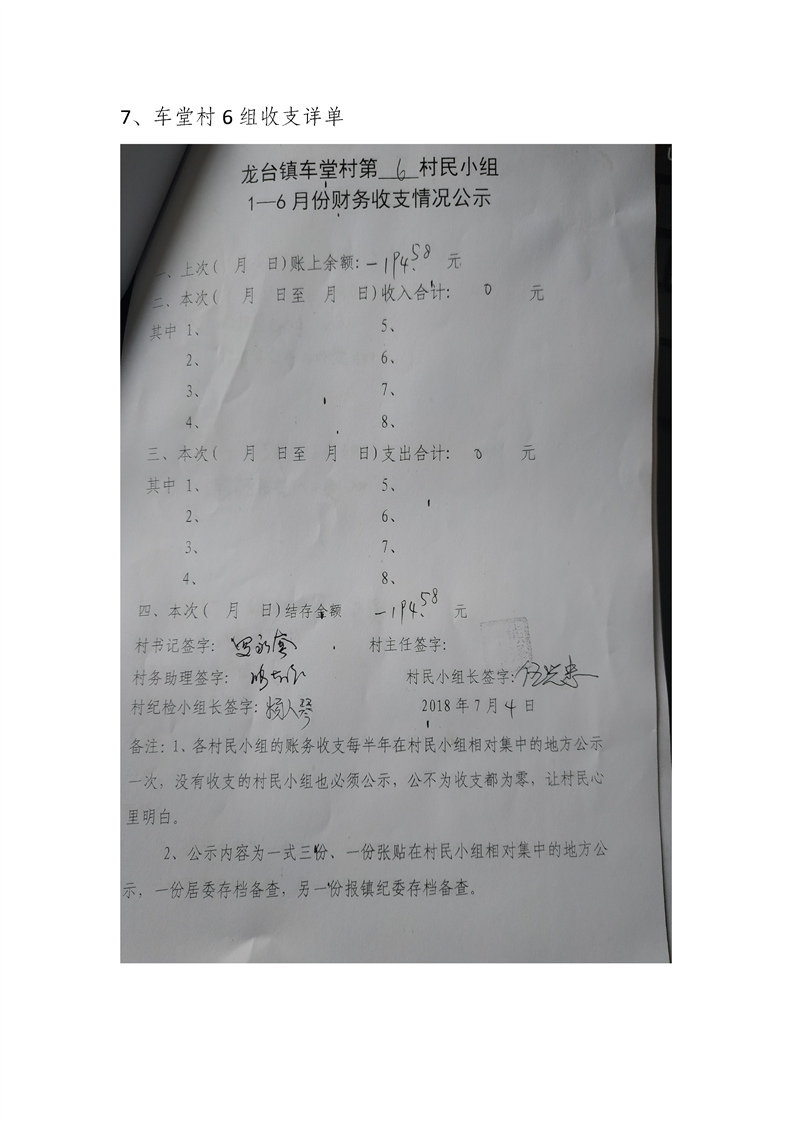 7、车堂村6组收支详单
龙台镇车堂村第 6 村民小组
1—6月份财务收支情况公示
一、上次( 月 日)账上余额:-194.58 元
二、本次( 月 日至 月 日)收入合计: 0 元
其中 1、 5、
2、 6、
3、 7、
4、 8、
三、本次( 月 日至 月 日)支出合计: 0 元
其中 1、 5、
2、 6、
3、 7、
4、 8、
四、本次( 月 日)结存金额 -194.58 元
村书记签字: 村主任签字:
村务助理签字: 村民小组长签字:
村纪检小组长签字: 2018年7月4日
备注:1、各村民小组的账务收支每半年在村民小组相对集中的地方公示
一次,没有收支的村民小组也必须公示,公不为收支都为零,让村民心
里明白。
2、公示内容为一式三份、一份张贴在村民小组相对集中的地方公
示,一份居委存档备查,另一份报镇纪委存档备查。